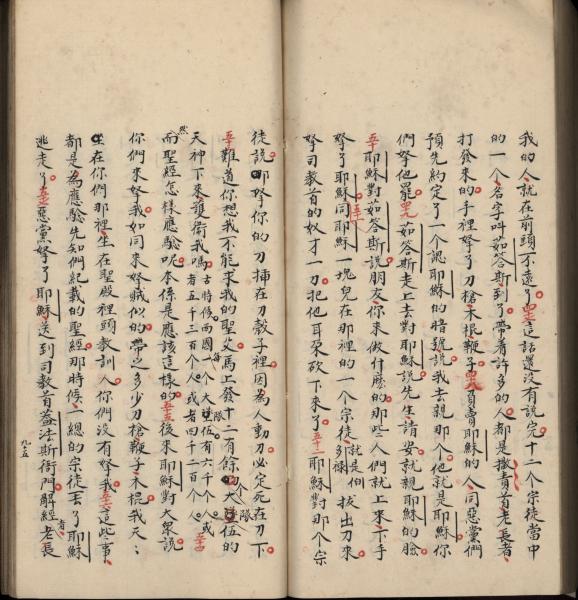 我的人就在前頭不遠了這話還沒有說完十二个宗徒當中
的一个名字叫茹答斯到了帶着許多的人都是撒責首老長者
打發來的手裡拏了刀槍木棍鞭子負賣耶穌的人同惡党們
預先約定了一个認耶穌的暗號說我去親那个他就是耶穌你
們拏他罷茹答斯走上去對耶穌說先生請安就親耶穌的臉
五十耶穌對茹答斯說朋友你來做什麼的那些人們就上來下手
拏了耶穌同耶穌一塊兒在那裡的一个宗徒就是伯多祿拔出刀來
拏司教首的奴才一刀把他耳朶砍下來了五十二耶穌對那个宗
徒說拏你的刀插在刀敹子裡因為人動刀必定死在刀下
難道你想我不能求我的聖父馬上發十二有餘的大隊伍的
天神下來護衛我嗎古時候西國每一个大隊伍有六千个人或者五千三百个人或者四千二百个人
然而聖經怎樣應驗呢本係是應該這樣的後來耶穌對大眾說
你們來拏我如同來拏賊似的帶之多少刀槍鞭子木棍我天天
坐在你們那裡坐在聖殿裡頭教訓人你們沒有拏我這些事
都是為應驗先知們紀載的聖經那時候一總的宗徒丢了耶穌
逃走了惡黨拏了耶穌送到司教首蓋法斯衙門解經者老長
九五